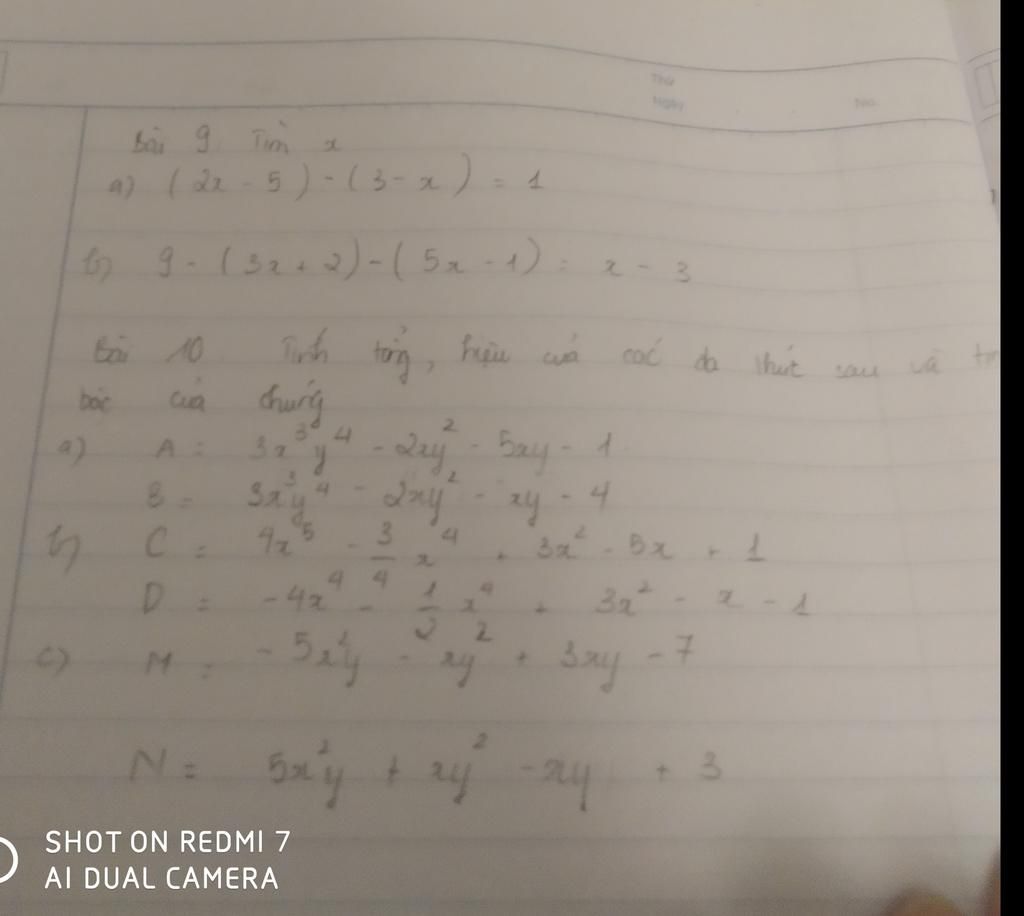 Thứ
Ngày No.
Bài 9 Tìm x
a) (2x - 5) - (3 - x) = 1
b) 9 - (3x + 2) - (5x - 1) = x - 3
Bài 10 Tính tổng, hiệu của các đa thức sau và
bậc của chúng
a) A = 3x³y⁴ - 2xy² - 5xy - 1
B = 3x³y⁴ - 2xy² - xy - 4
b) C = 4x⁵ - 3/4 x⁴ + 3x² - 5x + 1
D = -4x⁴ - 1/2 x⁴ + 3x² - x - 1
c) M = -5x²y - xy² + 3xy - 7
N = 5x²y + xy² - xy + 3
SHOT ON REDMI 7
AI DUAL CAMERA